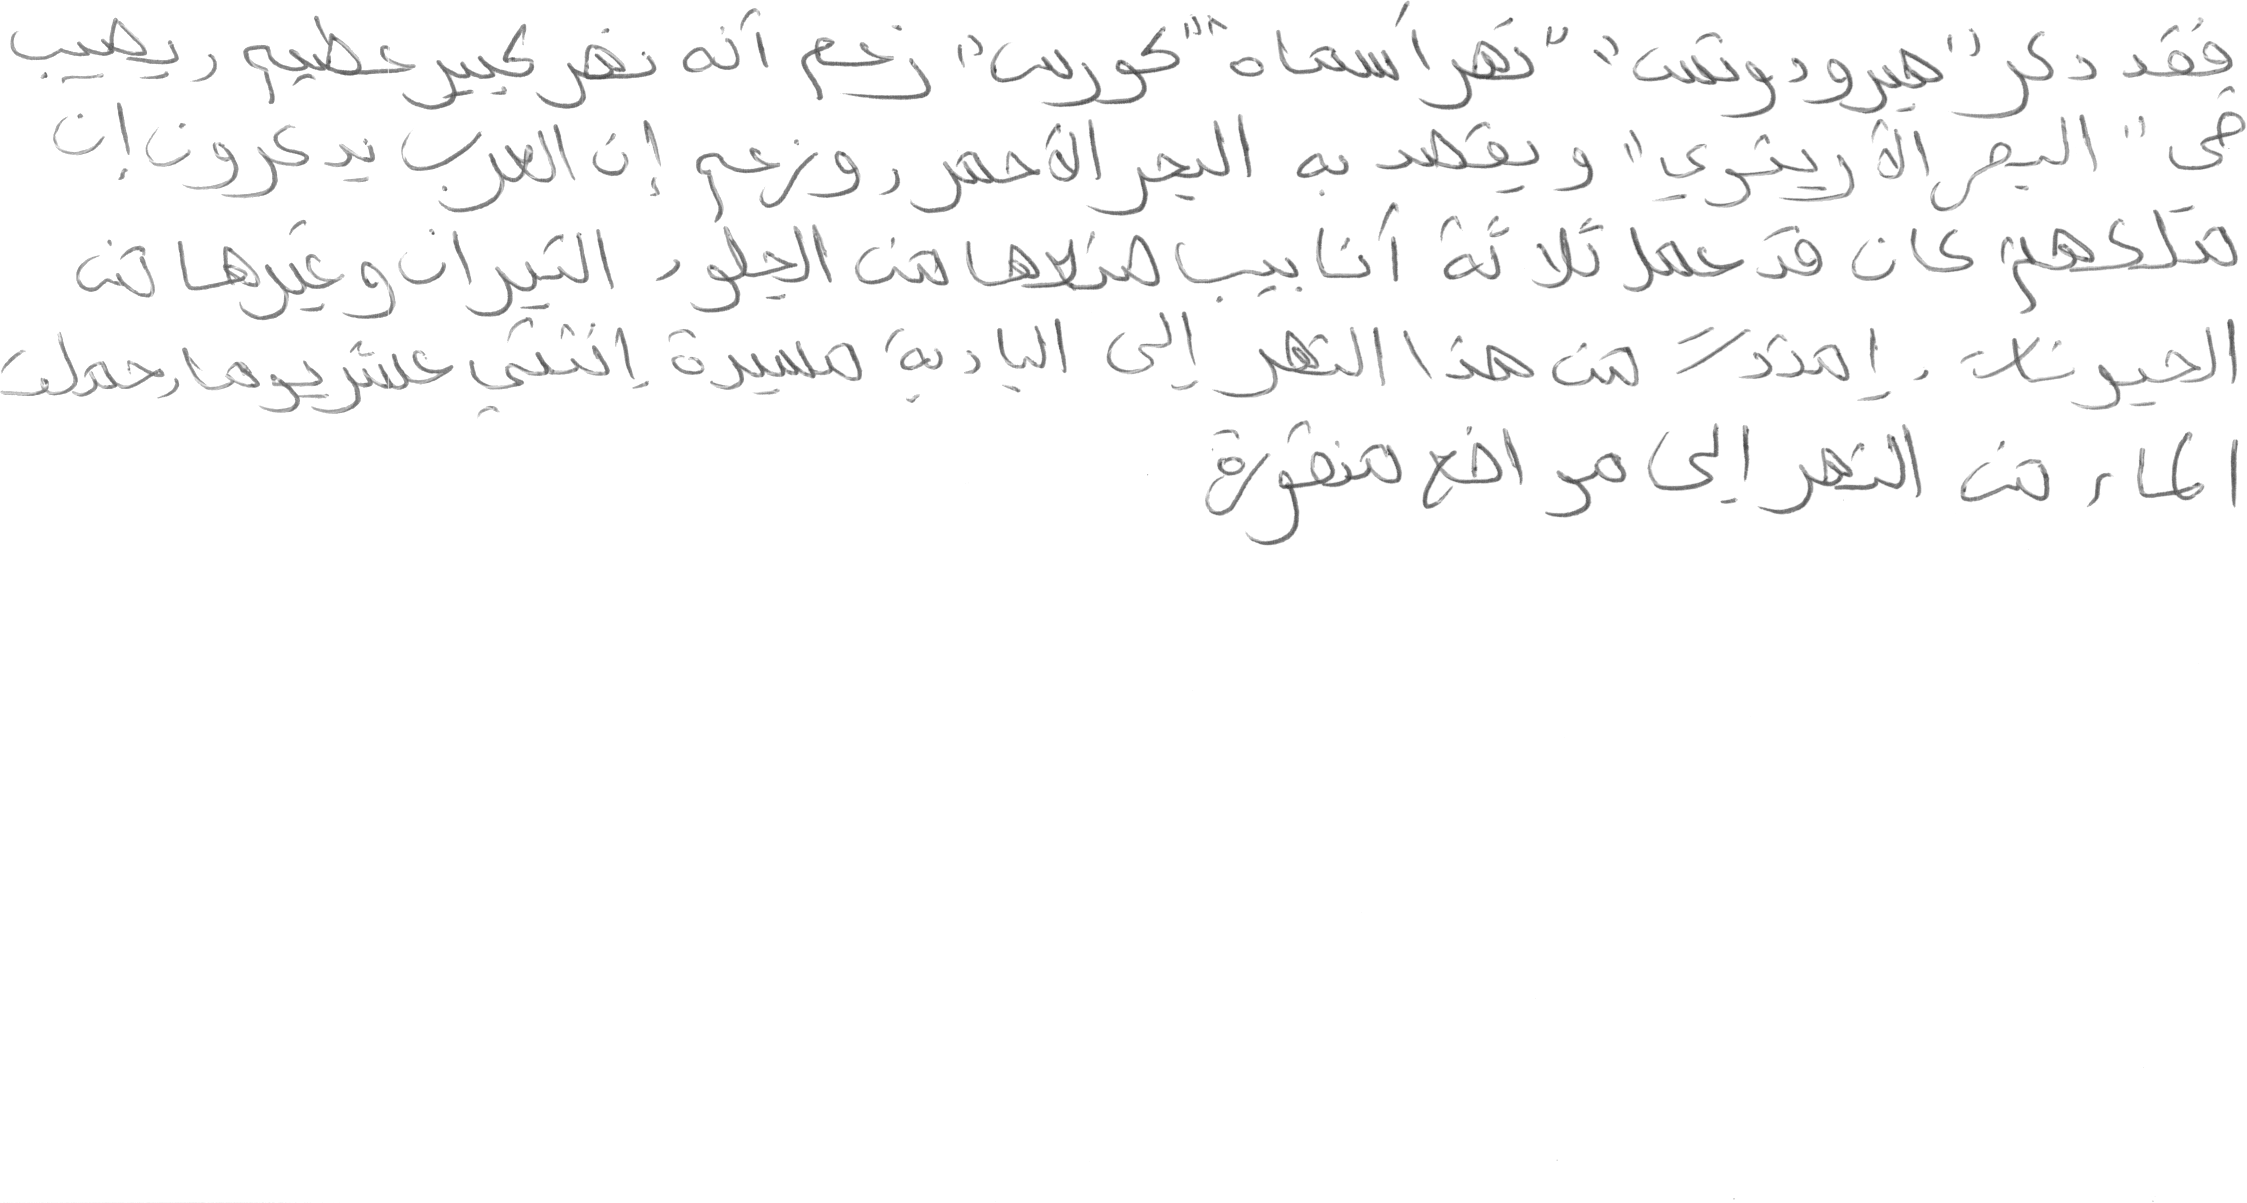 فقد دكر "هيرودوتس" "نهرا أسماه "كورس" زعم أنه نهر كبير عظيم، يصب
في "البحر الأريتوي" ويقصد به البحر الأحمر، وزعم إن العرب يدكرون إن
ملكهم كان قد عمل ثلاثة أنابيب صنلاها من الجلود، التيران وغيرها من
الحيونات، إمتدت من هذا النهر إلى البادية مسيرة إثنثي عشر يوما، حملت
الماء من النهر إلى مواضع منقورة